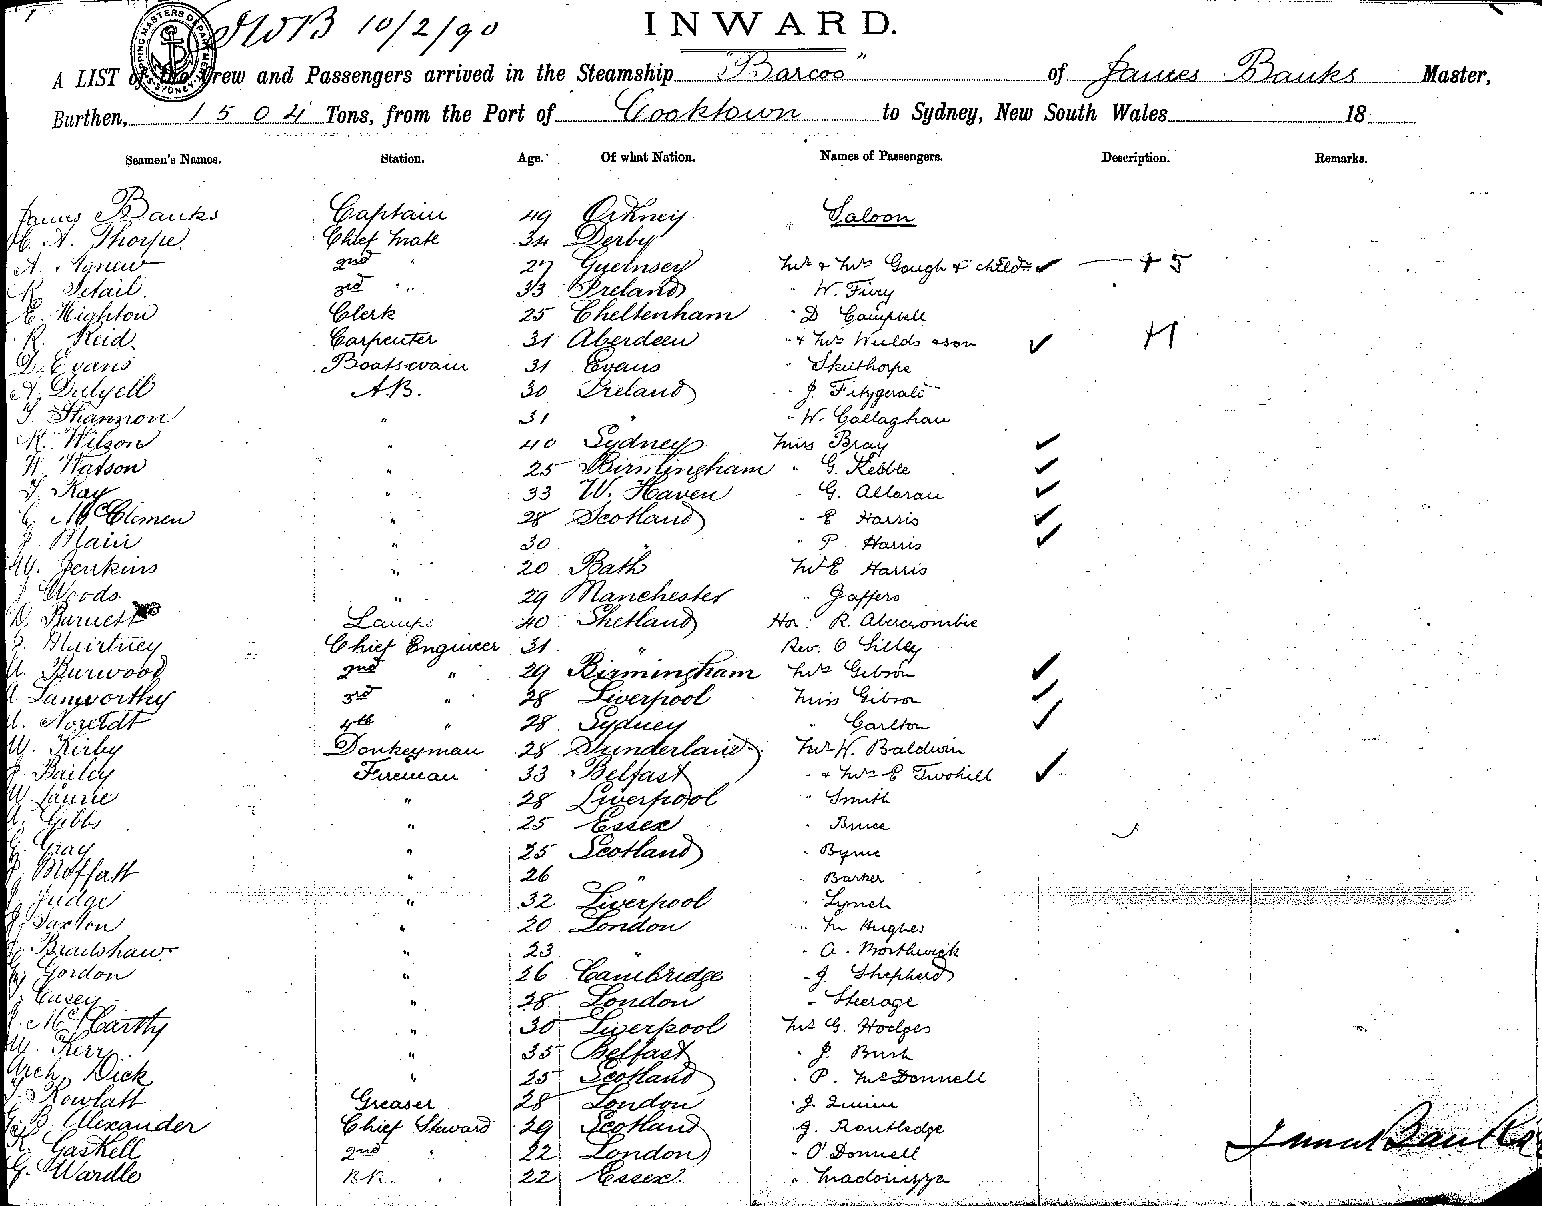 JWB 10/2/90
INWARD.
A LIST of the Crew and Passengers arrived in the Steamship "Barcoo" of James Banks Master,
Burthen, 1504 Tons, from the Port of Cooktown to Sydney, New South Wales 18
Seamen's Names. Station. Age. Of what Nation. Names of Passengers. Description. Remarks.
James Banks Captain 49 Orkney Saloon
A. Thorpe Chief Mate 34 Derby
A. Agnew 2nd " 27 Guernsey Mr & Mrs Gough & child ✓ — + 5
R. 3rd " 33 Ireland " W. Fury
E. Highton Clerk 25 Cheltenham " D Campbell
R. Reid Carpenter 31 Aberdeen " & Mrs & son ✓ H
D. Evans Boatswain 31 Evans " Skelthorpe
A. Dalyell A.B. 30 Ireland " J. Fitzgerald
T. Shannon " 31 " " W. Callaghan
R. Wilson " 40 Sydney Miss Bray ✓
W. Watson " 25 Birmingham " G. Kebble ✓
T. Kay " 33 W. Haven " G. ✓
McClemen " 28 Scotland " E Harris ✓
J. Main " 30 " " P. Harris ✓
W. Jenkins " 20 Bath Mr E Harris
J. Woods " 29 Manchester " Gaffers
D. Burnett Lamps 40 Shetland Hon. R. Abercrombie
Chief Engineer 31 " Rev. O
Burwood 2nd " 29 Birmingham Mrs Gibson ✓
Langworthy 3rd " 28 Liverpool Miss Gibson ✓
4th " 28 Sydney " Carlton ✓
W. Kirby Donkeyman 28 Sunderland Mr W. Baldwin
J. Bailey Fireman 33 Belfast " & Mrs E Twohill ✓
W Laurie " 28 Liverpool " Smith
Gibbs " 25 Essex " Bruce
G. Gray " 25 Scotland " Byrne
J. Moffatt " 26 " " Barker
J. Judge " 32 Liverpool " Lynch
J. Saxton " 20 London " M Hughes
Bradshaw " 23 " " A. Borthwick
Gordon " 26 Cambridge " J Shepherd
Casey " 28 London " Steerage
J. McCarthy " 30 Liverpool Mr G. Hodges
W. Kerr " 35 Belfast " J. Bush
Arch. Dick " 25 Scotland " P. McDonnell
J. Rowlatt Greaser 28 London " J. Quinn
B. Alexander Chief Steward 29 Scotland " J. Routledge
Gaskell 2nd " 22 London " O'Donnell
G. Wardle 22 Essex
James Banks